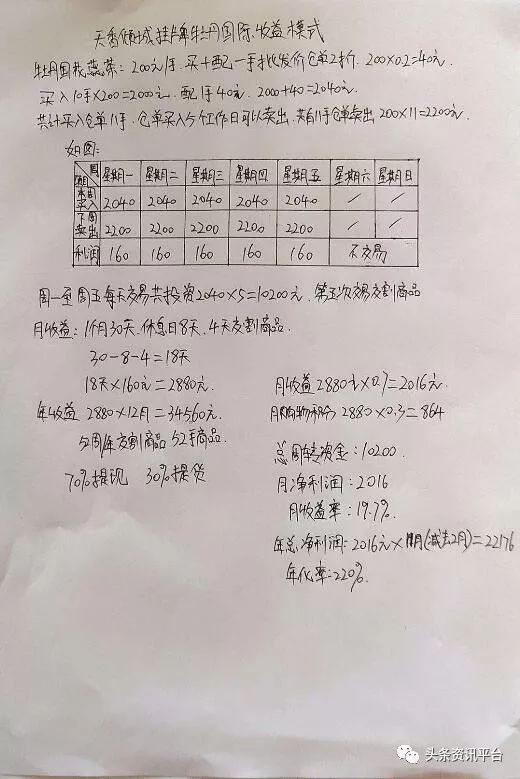 天香倾城挂牌牡丹国际.收益模式
牡丹国花燕菜: 200元/手. 买十配一手批发价仓单2折. 200×0.2=40元.
买入10手×200=2000元. 配1手40元. 2000+40=2040元.
共计买入仓单11手. 仓单买入5个工作日可以卖出. 共有11手仓单卖出 200×11=2200元.
如图:
周 项目 星期一 星期二 星期三 星期四 星期五 星期六 星期日
本周买入 2040 2040 2040 2040 2040 / /
下周卖出 2200 2200 2200 2200 2200 / /
利润 160 160 160 160 160 不交易
周一至周五每天交易共投资2040×5=10200元. 第五次交易交割商品
月收益: 1个月30天. 休息日8天. 4天交割商品.
30-8-4=18天
18天×160元=2880元.
年收益 2880×12月=34560元.
52周年交割商品 52手商品.
70%提现 30%提货
月收益2880元×0.7=2016元.
月购物积分 2880×0.3=864
总周转资金: 10200.
月净利润: 2016
月收益率: 19.7%.
年总净利润: 2016元×11月(减去2月)=22176
年化率: 220%.
头条资讯平台